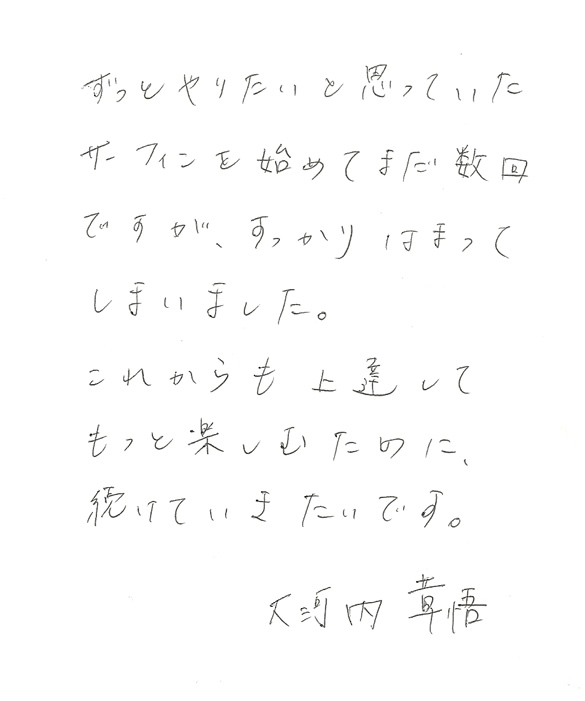 ずっとやりたいと思っていた
サーフィンを始めてまだ数回
ですが、すっかりはまって
しまいました。
これからも上達して
もっと楽しむために、
続けていきたいです。
大河内 章悟